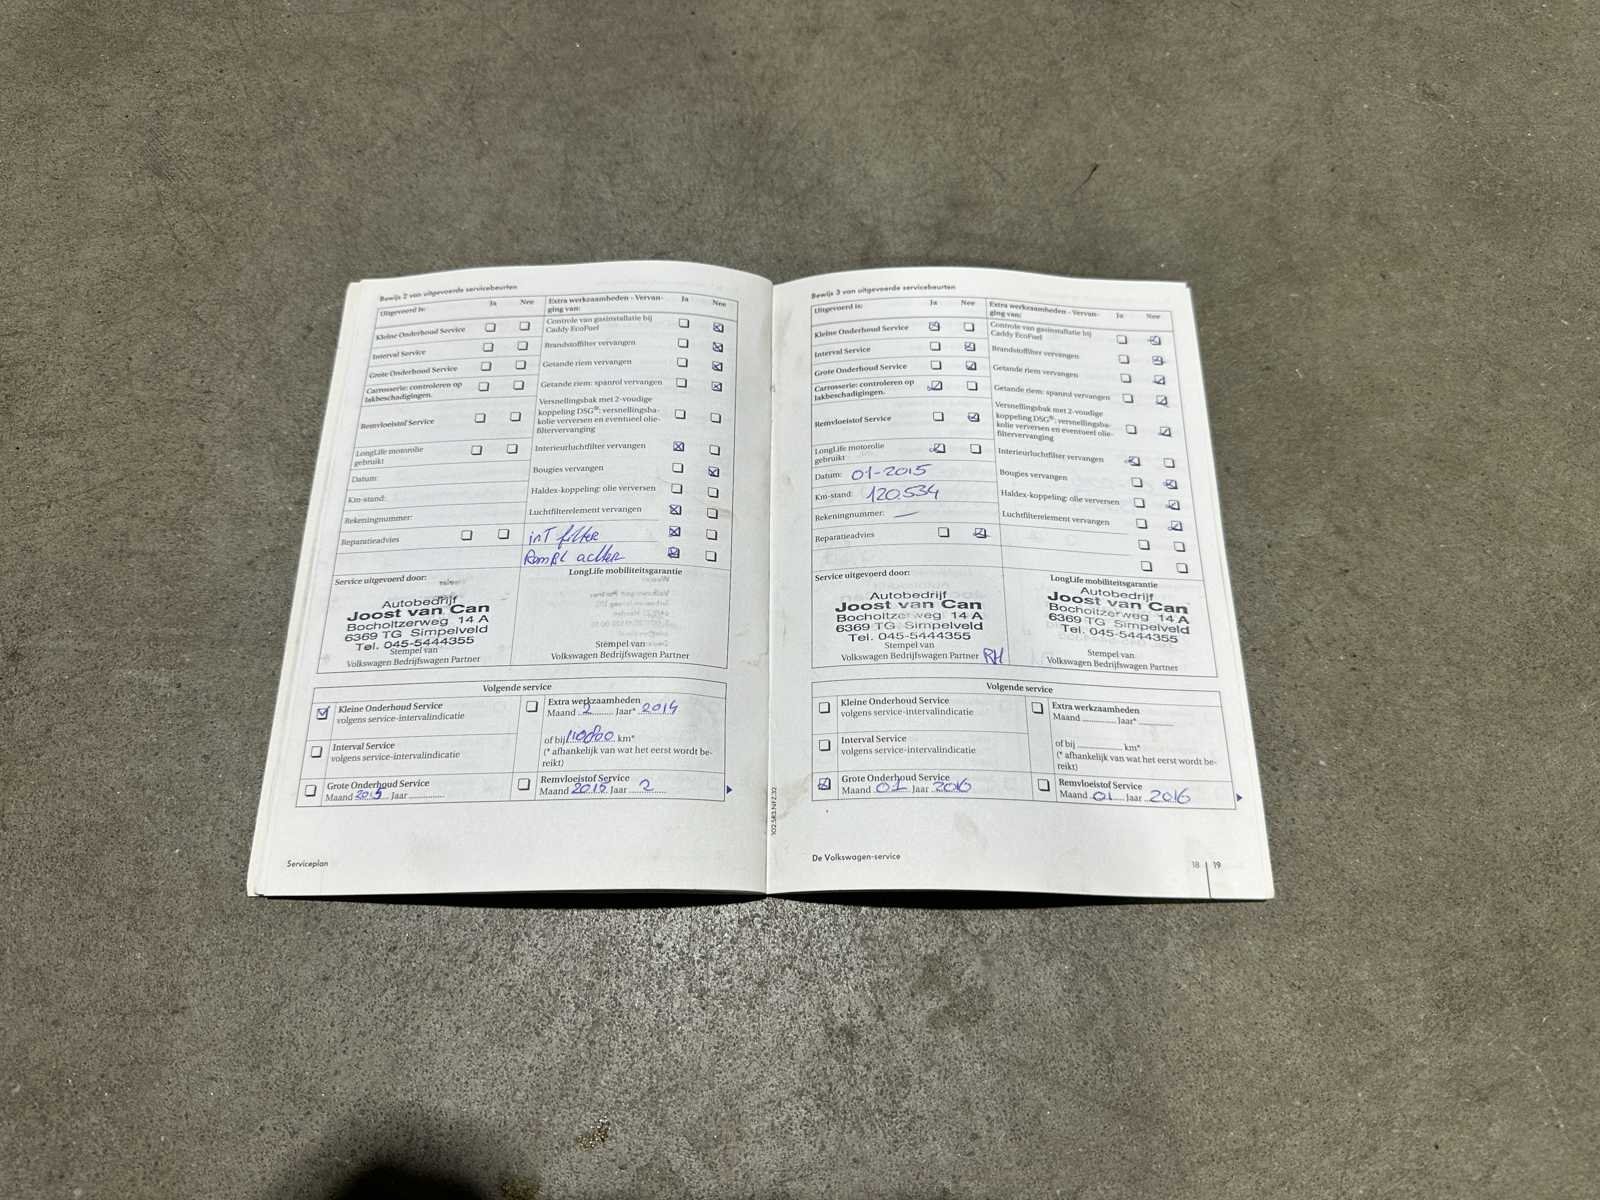 Bewijs 2 van uitgevoerde servicebeurten
Uitgevoerd is:
Ja Nee
Kleine Onderhoud Service
Interval Service
Grote Onderhoud Service
Carrosserie: controleren op
lakbeschadigingen.
Remvloeistof Service
LongLife motorolie
gebruikt
Datum:
Km-stand:
Rekeningnummer:
Reparatieadvies
Extra werkzaamheden - Vervan-
ging van:
Ja Nee
Controle van gasinstallatie bij
Caddy EcoFuel
Brandstoffilter vervangen
Getande riem vervangen
Getande riem: spanrol vervangen
Versnellingsbak met 2-voudige
koppeling DSG®: versnellingsba-
kolie verversen en eventueel olie-
filtervervanging
Interieurluchtfilter vervangen
Bougies vervangen
Haldex-koppeling: olie verversen
Luchtfilterelement vervangen
inT filter
Service uitgevoerd door:
Autobedrijf
Joost van Can
Bocholtzerweg 14 A
6369 TG Simpelveld
Tel. 045-5444355
Stempel van
Volkswagen Bedrijfswagen Partner
LongLife mobiliteitsgarantie
Stempel van
Volkswagen Bedrijfswagen Partner
Volgende service
Kleine Onderhoud Service
volgens service-intervalindicatie
Interval Service
volgens service-intervalindicatie
Grote Onderhoud Service
Maand 2015 Jaar
Extra werkzaamheden
Maand 2 Jaar* 2014
of bij km*
(* afhankelijk van wat het eerst wordt be-
reikt)
Remvloeistof Service
Maand 2015 Jaar 2
Serviceplan
102.5R3.NFZ.32
Bewijs 3 van uitgevoerde servicebeurten
Uitgevoerd is:
Ja Nee
Kleine Onderhoud Service
Interval Service
Grote Onderhoud Service
Carrosserie: controleren op
lakbeschadigingen.
Remvloeistof Service
LongLife motorolie
gebruikt
Datum: 01-2015
Km-stand: 120.534
Rekeningnummer: —
Reparatieadvies
Extra werkzaamheden - Vervan-
ging van:
Ja Nee
Controle van gasinstallatie bij
Caddy EcoFuel
Brandstoffilter vervangen
Getande riem vervangen
Getande riem: spanrol vervangen
Versnellingsbak met 2-voudige
koppeling DSG®: versnellingsba-
kolie verversen en eventueel olie-
filtervervanging
Interieurluchtfilter vervangen
Bougies vervangen
Haldex-koppeling: olie verversen
Luchtfilterelement vervangen
Service uitgevoerd door:
Autobedrijf
Joost van Can
Bocholtzerweg 14 A
6369 TG Simpelveld
Tel. 045-5444355
Stempel van
Volkswagen Bedrijfswagen Partner RH
LongLife mobiliteitsgarantie
Autobedrijf
Joost van Can
Bocholtzerweg 14 A
6369 TG Simpelveld
Tel. 045-5444355
Stempel van
Volkswagen Bedrijfswagen Partner
Volgende service
Kleine Onderhoud Service
volgens service-intervalindicatie
Interval Service
volgens service-intervalindicatie
Grote Onderhoud Service
Maand 01 Jaar 2016
Extra werkzaamheden
Maand Jaar*
of bij km*
(* afhankelijk van wat het eerst wordt be-
reikt)
Remvloeistof Service
Maand 01 Jaar 2016
De Volkswagen-service
18 | 19